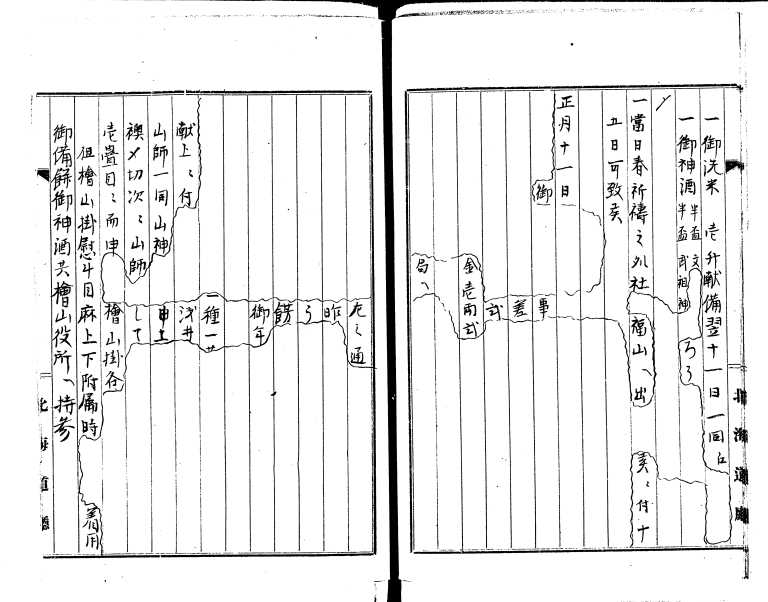 一御洗米 壱升献備翌十一日一同ゟ
一御神酒 半盃 半盃 文 武祖神 ろろ
一當日春祈禱之外社 福山へ出
五日可致矣 矣〻付十
正月十一日
御
事
差
弐
金壱両弐
局へ
左之通
昨
う
餝
御年
一種一廿
浅井
申上
して
献上〻付
山師一同山神
襖〆切次〻山師
壱畳目〻而申 檜山掛各
但檜山掛慰斗目麻上下附属時 着用
御備餘御神酒共檜山役所へ持参
北海道廳
北海道廳